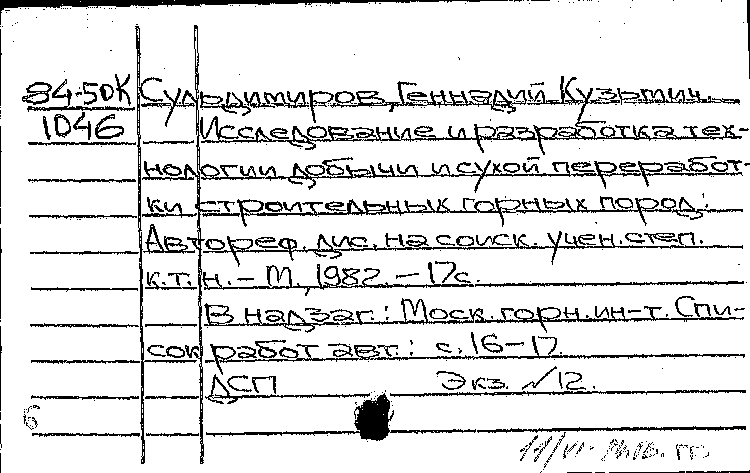 84-5ДК Сульдимиров, Геннадий Кузьмич.
1046 Исследование и разработка тех-
нологии добычи и сухой переработ-
ки строительных горных пород:
Автореф. дис. на соиск. учен. степ.
к.т.н. - М., 1982. - 17с.
В надзаг.: Моск. горн. ин-т. Спи-
сок работ авт.: с. 16-17.
ДСП Экз. N12.
6